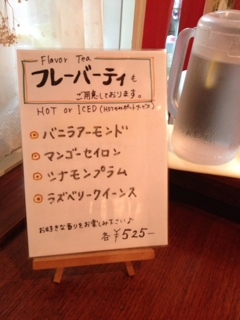 Flavor Tea
フレーバーティも
ご用意しております。
HOT or ICED (HOTはポットサービス)
バニラアーモンド
マンゴーセイロン
シナモンプラム
ラズベリークイーンズ
お好きな香りをお楽しみ下さい♪
各¥525-